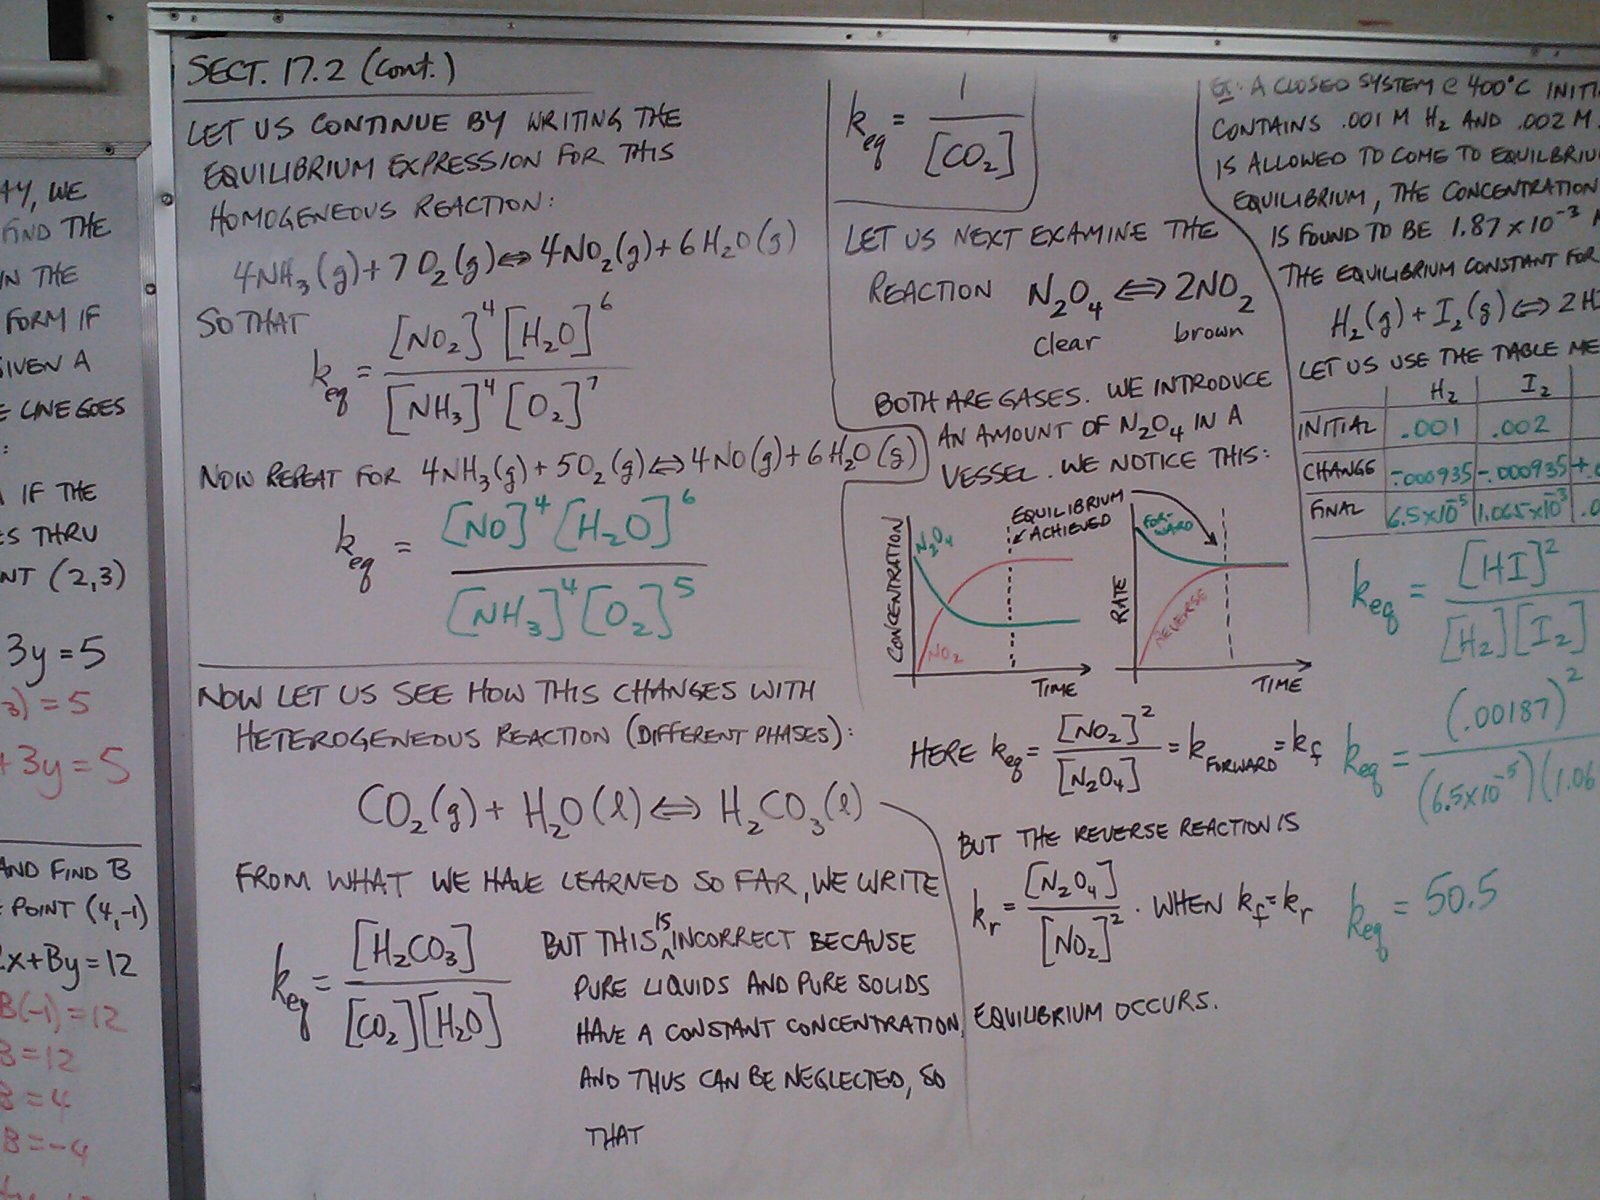 AY, WE
FIND THE
IN THE
FORM IF
GIVEN A
E LINE GOES
:
IF THE
ES THRU
NT (2,3)
3y = 5
3) = 5
+ 3y = 5
AND FIND B
POINT (4,-1)
2x+By=12
B(-1) = 12
B = 12
B = 4
B = -4
SECT. 17.2 (Cont.)
LET US CONTINUE BY WRITING THE
EQUILIBRIUM EXPRESSION FOR THIS
HOMOGENEOUS REACTION:
4NH₃(g) + 7O₂(g) ⇔ 4NO₂(g) + 6H₂O(g)
SO THAT
keq = [NO₂]⁴[H₂O]⁶ / [NH₃]⁴[O₂]⁷
NOW REPEAT FOR 4NH₃(g) + 5O₂(g) ⇔ 4NO(g) + 6H₂O(g)
keq = [NO]⁴[H₂O]⁶ / [NH₃]⁴[O₂]⁵
NOW LET US SEE HOW THIS CHANGES WITH
HETEROGENEOUS REACTION (DIFFERENT PHASES):
CO₂(g) + H₂O(l) ⇔ H₂CO₃(l)
FROM WHAT WE HAVE LEARNED SO FAR, WE WRITE
keq = [H₂CO₃] / [CO₂][H₂O]
BUT THIS IS INCORRECT BECAUSE
PURE LIQUIDS AND PURE SOLIDS
HAVE A CONSTANT CONCENTRATION,
AND THUS CAN BE NEGLECTED, SO
THAT
keq = 1 / [CO₂]
LET US NEXT EXAMINE THE
REACTION N₂O₄ ⇔ 2NO₂
clear brown
BOTH ARE GASES. WE INTRODUCE
AN AMOUNT OF N₂O₄ IN A
VESSEL. WE NOTICE THIS:
EQUILIBRIUM
ACHIEVED
CONCENTRATION
N₂O₄
NO₂
TIME
RATE
FOR-
WARD
REVERSE
TIME
HERE keq = [NO₂]² / [N₂O₄] = kFORWARD = kf
BUT THE REVERSE REACTION IS
kr = [N₂O₄] / [NO₂]² . WHEN kf = kr
EQUILIBRIUM OCCURS.
EX: A CLOSED SYSTEM @ 400°C INITI
CONTAINS .001 M H₂ AND .002 M
IS ALLOWED TO COME TO EQUILBRIU
EQUILIBRIUM, THE CONCENTRATION
IS FOUND TO BE 1.87 x 10⁻³ M
THE EQUILIBRIUM CONSTANT FOR
H₂(g) + I₂(g) ⇔ 2H
LET US USE THE TABLE ME
H₂ I₂
INITIAL .001 .002
CHANGE -.000935 -.000935 +.0
FINAL 6.5x10⁻⁵ 1.065x10⁻³ .0
keq = [HI]² / [H₂][I₂]
keq = (.00187)² / (6.5x10⁻⁵)(1.06
keq = 50.5